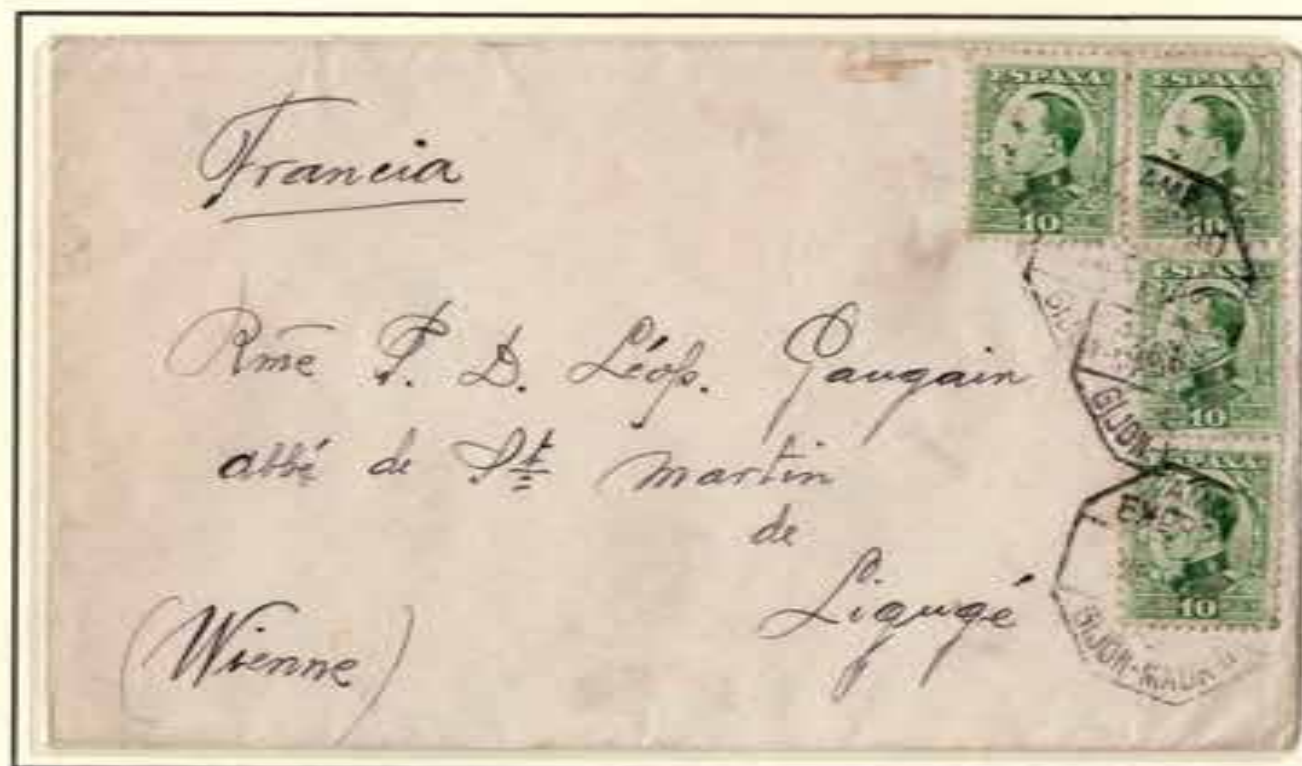 Francia
Rme P. D. Léop. Gaugain
abbé de St martin
de
Ligugé
(Wienne)
ESPAÑA
10
ESPAÑA
10
ESPAÑA
10
ESPAÑA
10
GIJON-
GIJON-MADRID